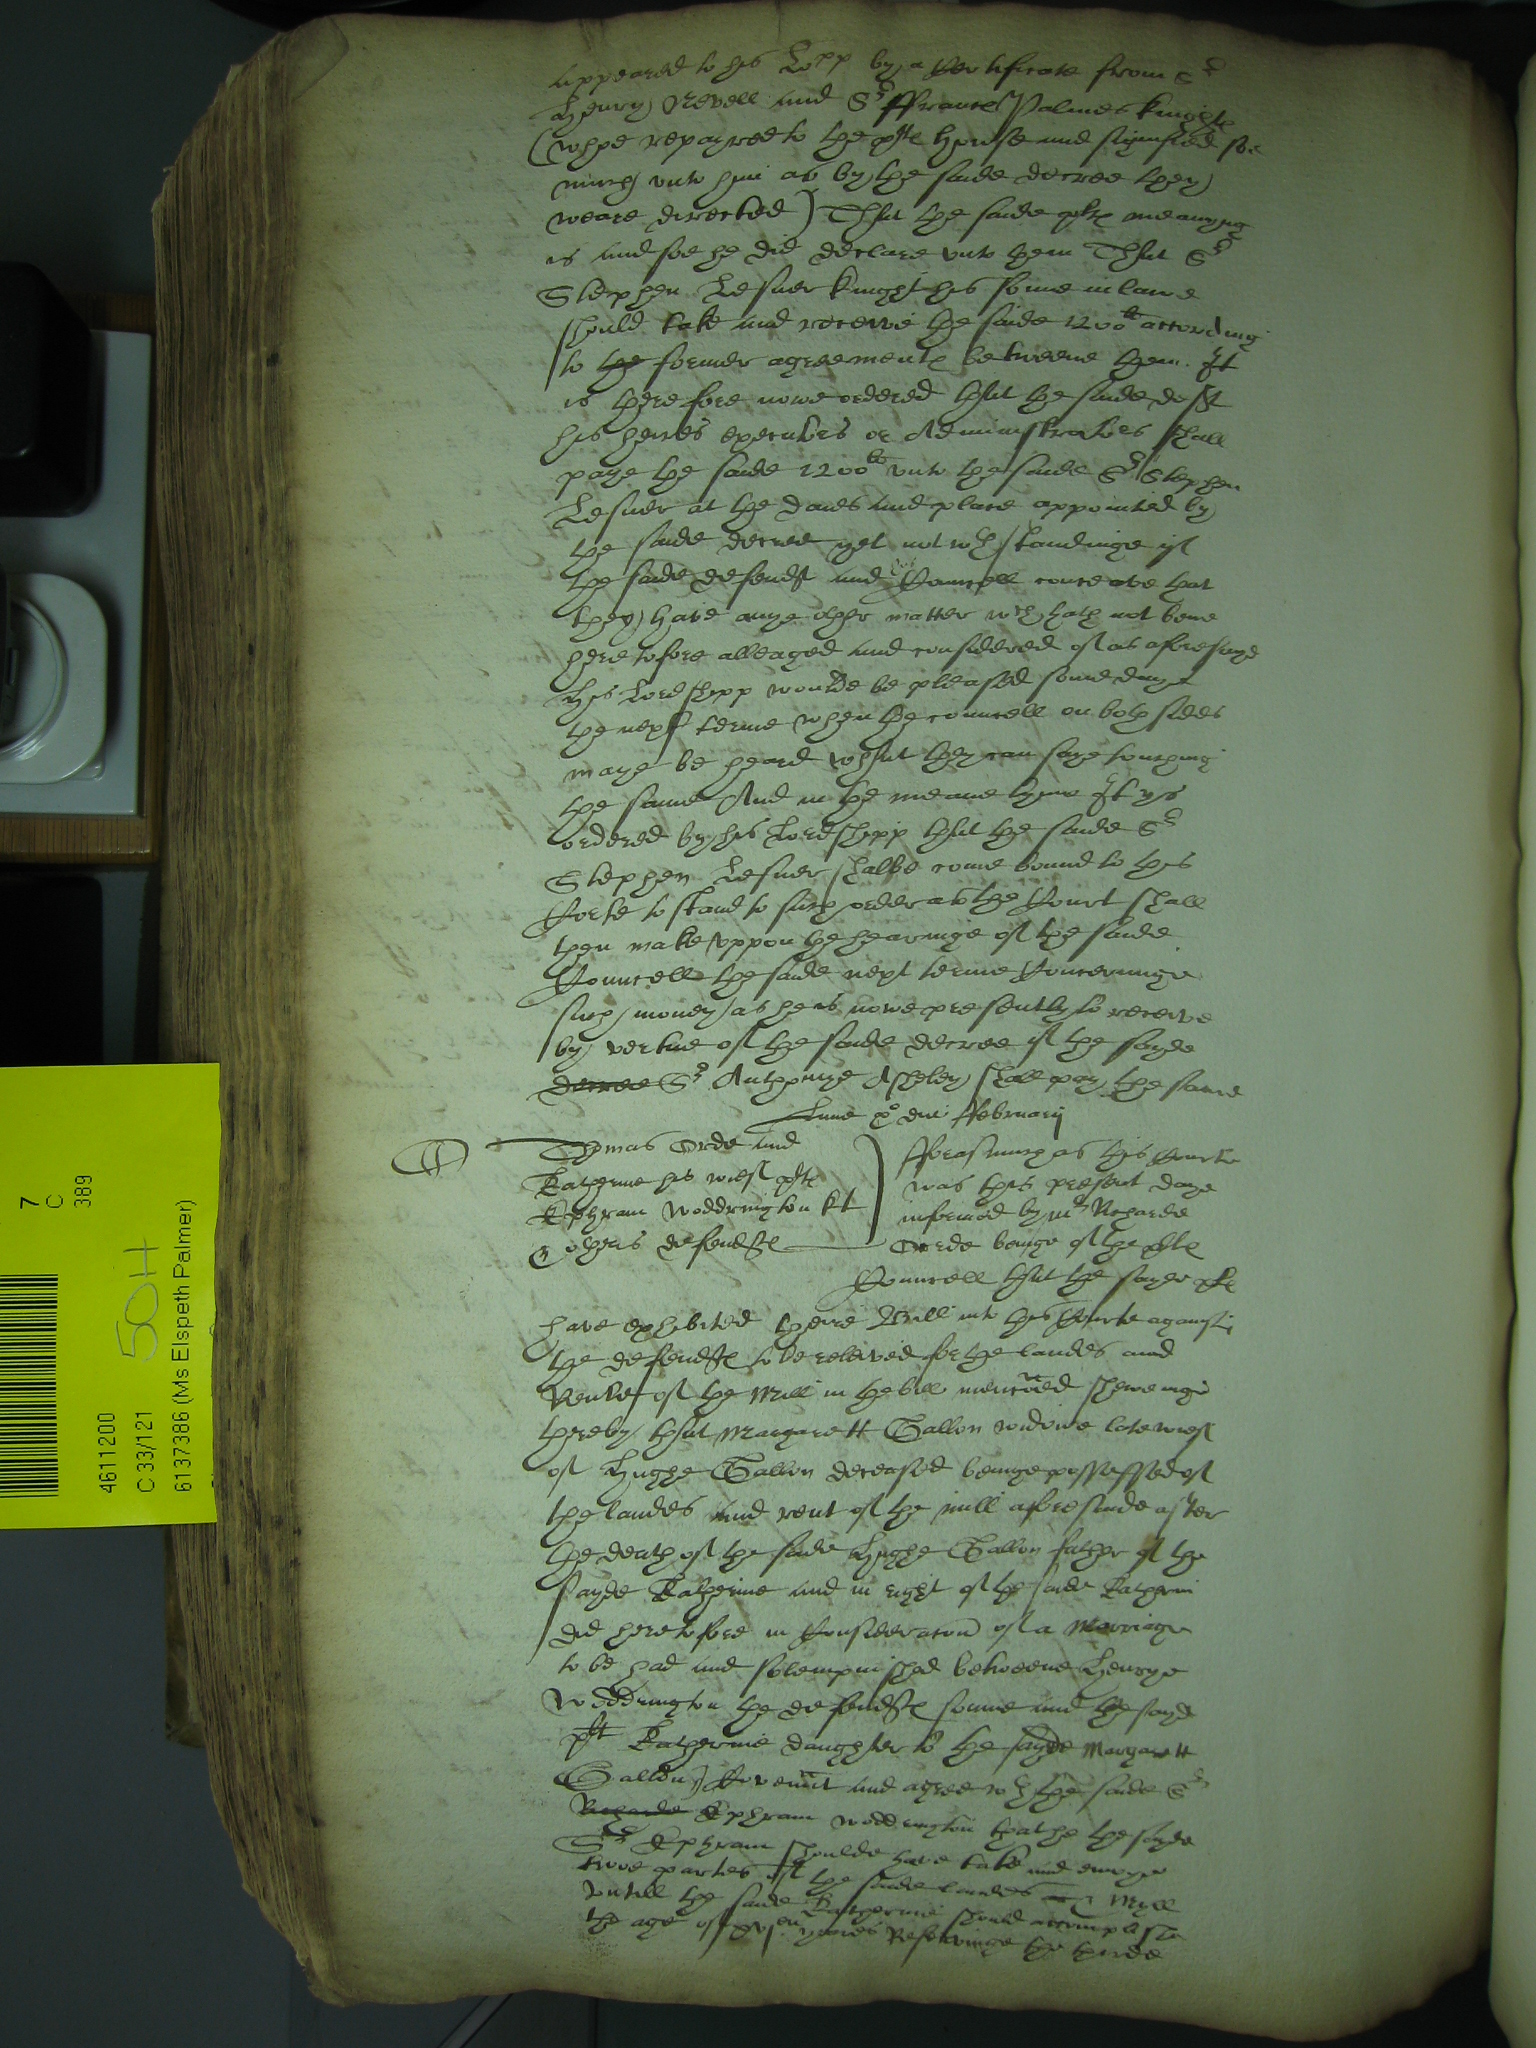 Appeared to his Lopp by a Certificate from Sr
Henry Nevell and Sr ffrauncs Palmes knights
(whoe repayred to the plts house and signified soe
much unto him as by the saide decree they
weare directed) That the saide plts meanyng
is and soe he did declare unto them That Sr
Stephen Lesuer knight his sonne in lawe
should take and receive the saide 1200li according
to the former agreements betweene them. It
is therefore nowe ordered that the saide deft
his heires executors or Administrators shall
paye the saide 1200li unto the saide Sr Stephen
Lesuer at the dayes and place appointed by
the saide decree yet notwthstandinge if
the saide defendt and Councell conceave that
they have anye other matter wch hath not bene
heretofore alleaged and considered of as aforesayd
His Lordshipp woulde be pleased some daye
the next terme when the councell on both sides
maye be heard what they can saye touching
the same And in the meane tyme It ys
ordered by his Lordshipp that the saide Sr
Stephen Lesuer shalbe come bound to this
Corte to stand to such order as the Court shall
then make uppon the hearinge of the saide
Councell the saide next terme Concerninge
such money as he is nowe presently to receive
by vertue of the saide decree if the sayde
decree Sr Anthonye Asheley shall pay the same
Lune po die ffebruarij
Thomas Orde and
Katherine his wief plts
Ephram Woddrington kt
& others defendts
fforasmuch as this Courte
was this present daye
informed by mr Richarde
Orde beinge of the plts
Councell that the sayde plts
have exhibited theire Bill into this Courte against
the defendts to be releived for the landes and
Rente of the Mill in the bill mencoed shewinge
thereby that Margarett Gallon widowe late wief
of Hughe Gallon deceased beinge possessed of
the landes and rent of the mill aforesaide after
the death of the saide Hughe Gallon father of the
sayde Katherine and in right of the saide Katherin
did heretofore in Consideracon of a Marriage
to be had and solempnished betweene Henrye
Woddrington the defendts sonne and the sayd
plt Katherine daughter to the sayde Margarett
Gallon) Covennt and agree wth the saide Sr
Richarde Ephram woddrington that he the sayde
Sr Ephram shoulde have take and enioye
twoe partes of the saide landes and Myll
untill the saide Katherine should accomplishe
the age of yeares Reservinge the thirde
7
C
389
50H
4611200
C 33/121
6137386 (Ms Elspeth Palmer)